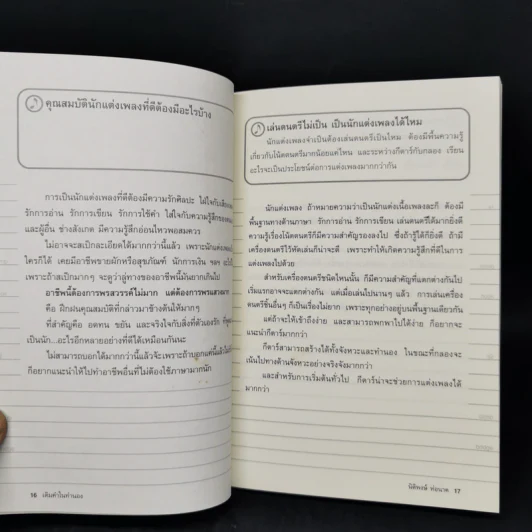 คุณสมบัตินักแต่งเพลงที่ดีต้องมีอะไรบ้าง
การเป็นนักแต่งเพลงที่ดีต้องมีความรักศิลปะ ใฝ่ใจกับสิ่ง
รักการอ่าน รักการเขียน รักการใช้คำ ใส่ใจกับความรู้สึกของ
และผู้อื่น ช่างสังเกต มีความรู้สึกอ่อนไหวพอสมควร
ไม่อาจจะสเปกละเอียดได้มากกว่านี้แล้ว เพราะนักแต่ง
ใครก็ได้ เคยมีอาชีพขายผักหรือสุขภัณฑ์ นักการเงิน ฯลฯ
เพราะถ้าสเปกมากๆ จะดูว่าลู่ทางของอาชีพนี้มันยากเกินไป
อาชีพนี้ต้องการพรสวรรค์ไม่มาก แต่ต้องการพรแสวง
คือ ฝึกฝนคุณสมบัติที่กล่าวมาข้างต้นให้มากๆ
ที่สำคัญคือ อดทน ขยัน และจริงใจกับสิ่งที่ตัวเองรัก ก็
เป็นนัก...อะไรอีกหลายอย่างที่ดีได้เหมือนกันนะ
ไม่สามารถบอกได้มากกว่านี้แล้วจ้ะเพราะถ้าบอกแค่นี้แล้ว
ก็อยากแนะนำให้ไปทำอาชีพอื่นที่ไม่ต้องใช้ภาษามากนัก
16 เติมคำในทำนอง
เล่นดนตรีไม่เป็น เป็นนักแต่งเพลงได้ไหม
นักแต่งเพลงจำเป็นต้องเล่นดนตรีเป็นไหม ต้องมีพื้นความรู้
เกี่ยวกับโน้ตดนตรีมากน้อยแค่ไหน และระหว่างกีตาร์กับกลอง เรียน
อะไรจะเป็นประโยชน์ต่อการแต่งเพลงมากกว่ากัน
นักแต่งเพลง ถ้าหมายความว่าเป็นนักแต่งเนื้อเพลงละก็ ต้องมี
พื้นฐานทางด้านภาษา รักการอ่าน รักการเขียน เล่นดนตรีได้มากยิ่งดี
ความรู้เรื่องโน้ตดนตรีก็มีความสำคัญรองลงไป ซึ่งถ้ารู้ได้ก็ยิ่งดี ถ้ามี
เครื่องดนตรีไว้หัดเล่นก็น่าจะดี เพราะทำให้เกิดความรู้สึกที่ดีในการ
แต่งเพลงไปด้วย
สำหรับเครื่องดนตรีชนิดไหนนั้น ก็มีความสำคัญที่แตกต่างกันไป
เริ่มแรกอาจจะแตกต่างกัน แต่เมื่อเล่นไปนานๆ แล้ว การเล่นเครื่อง
ดนตรีชิ้นอื่นๆ ก็เป็นเรื่องไม่ยาก เพราะทุกอย่างอยู่บนพื้นฐานเดียวกัน
แต่ถ้าจะให้เข้าถึงง่าย และสามารถพกพาไปได้ง่าย ก็อยากจะ
แนะนำกีตาร์มากกว่า
กีตาร์สามารถสร้างได้ทั้งจังหวะและทำนอง ในขณะที่กลองจะ
เน้นไปทางด้านจังหวะอย่างจริงจังมากกว่า
และสำหรับการเริ่มต้นทั่วไป กีตาร์น่าจะช่วยการแต่งเพลงได้
มากกว่า
นิติพงษ์ ห่อนาค 17